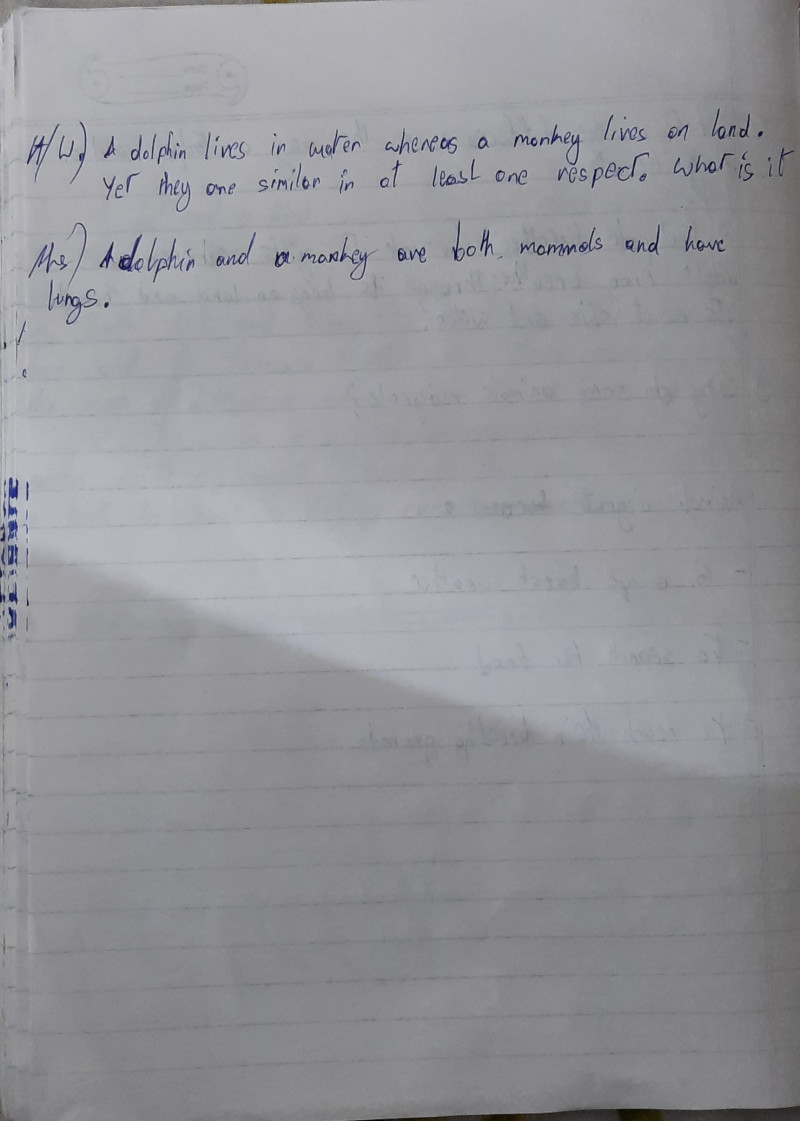 H/W) A dolphin lives in water whereas a monkey lives on land.
Yet they are similar in at least one respect. What is it
Ans) A dolphin and a monkey are both mammals and have
lungs.